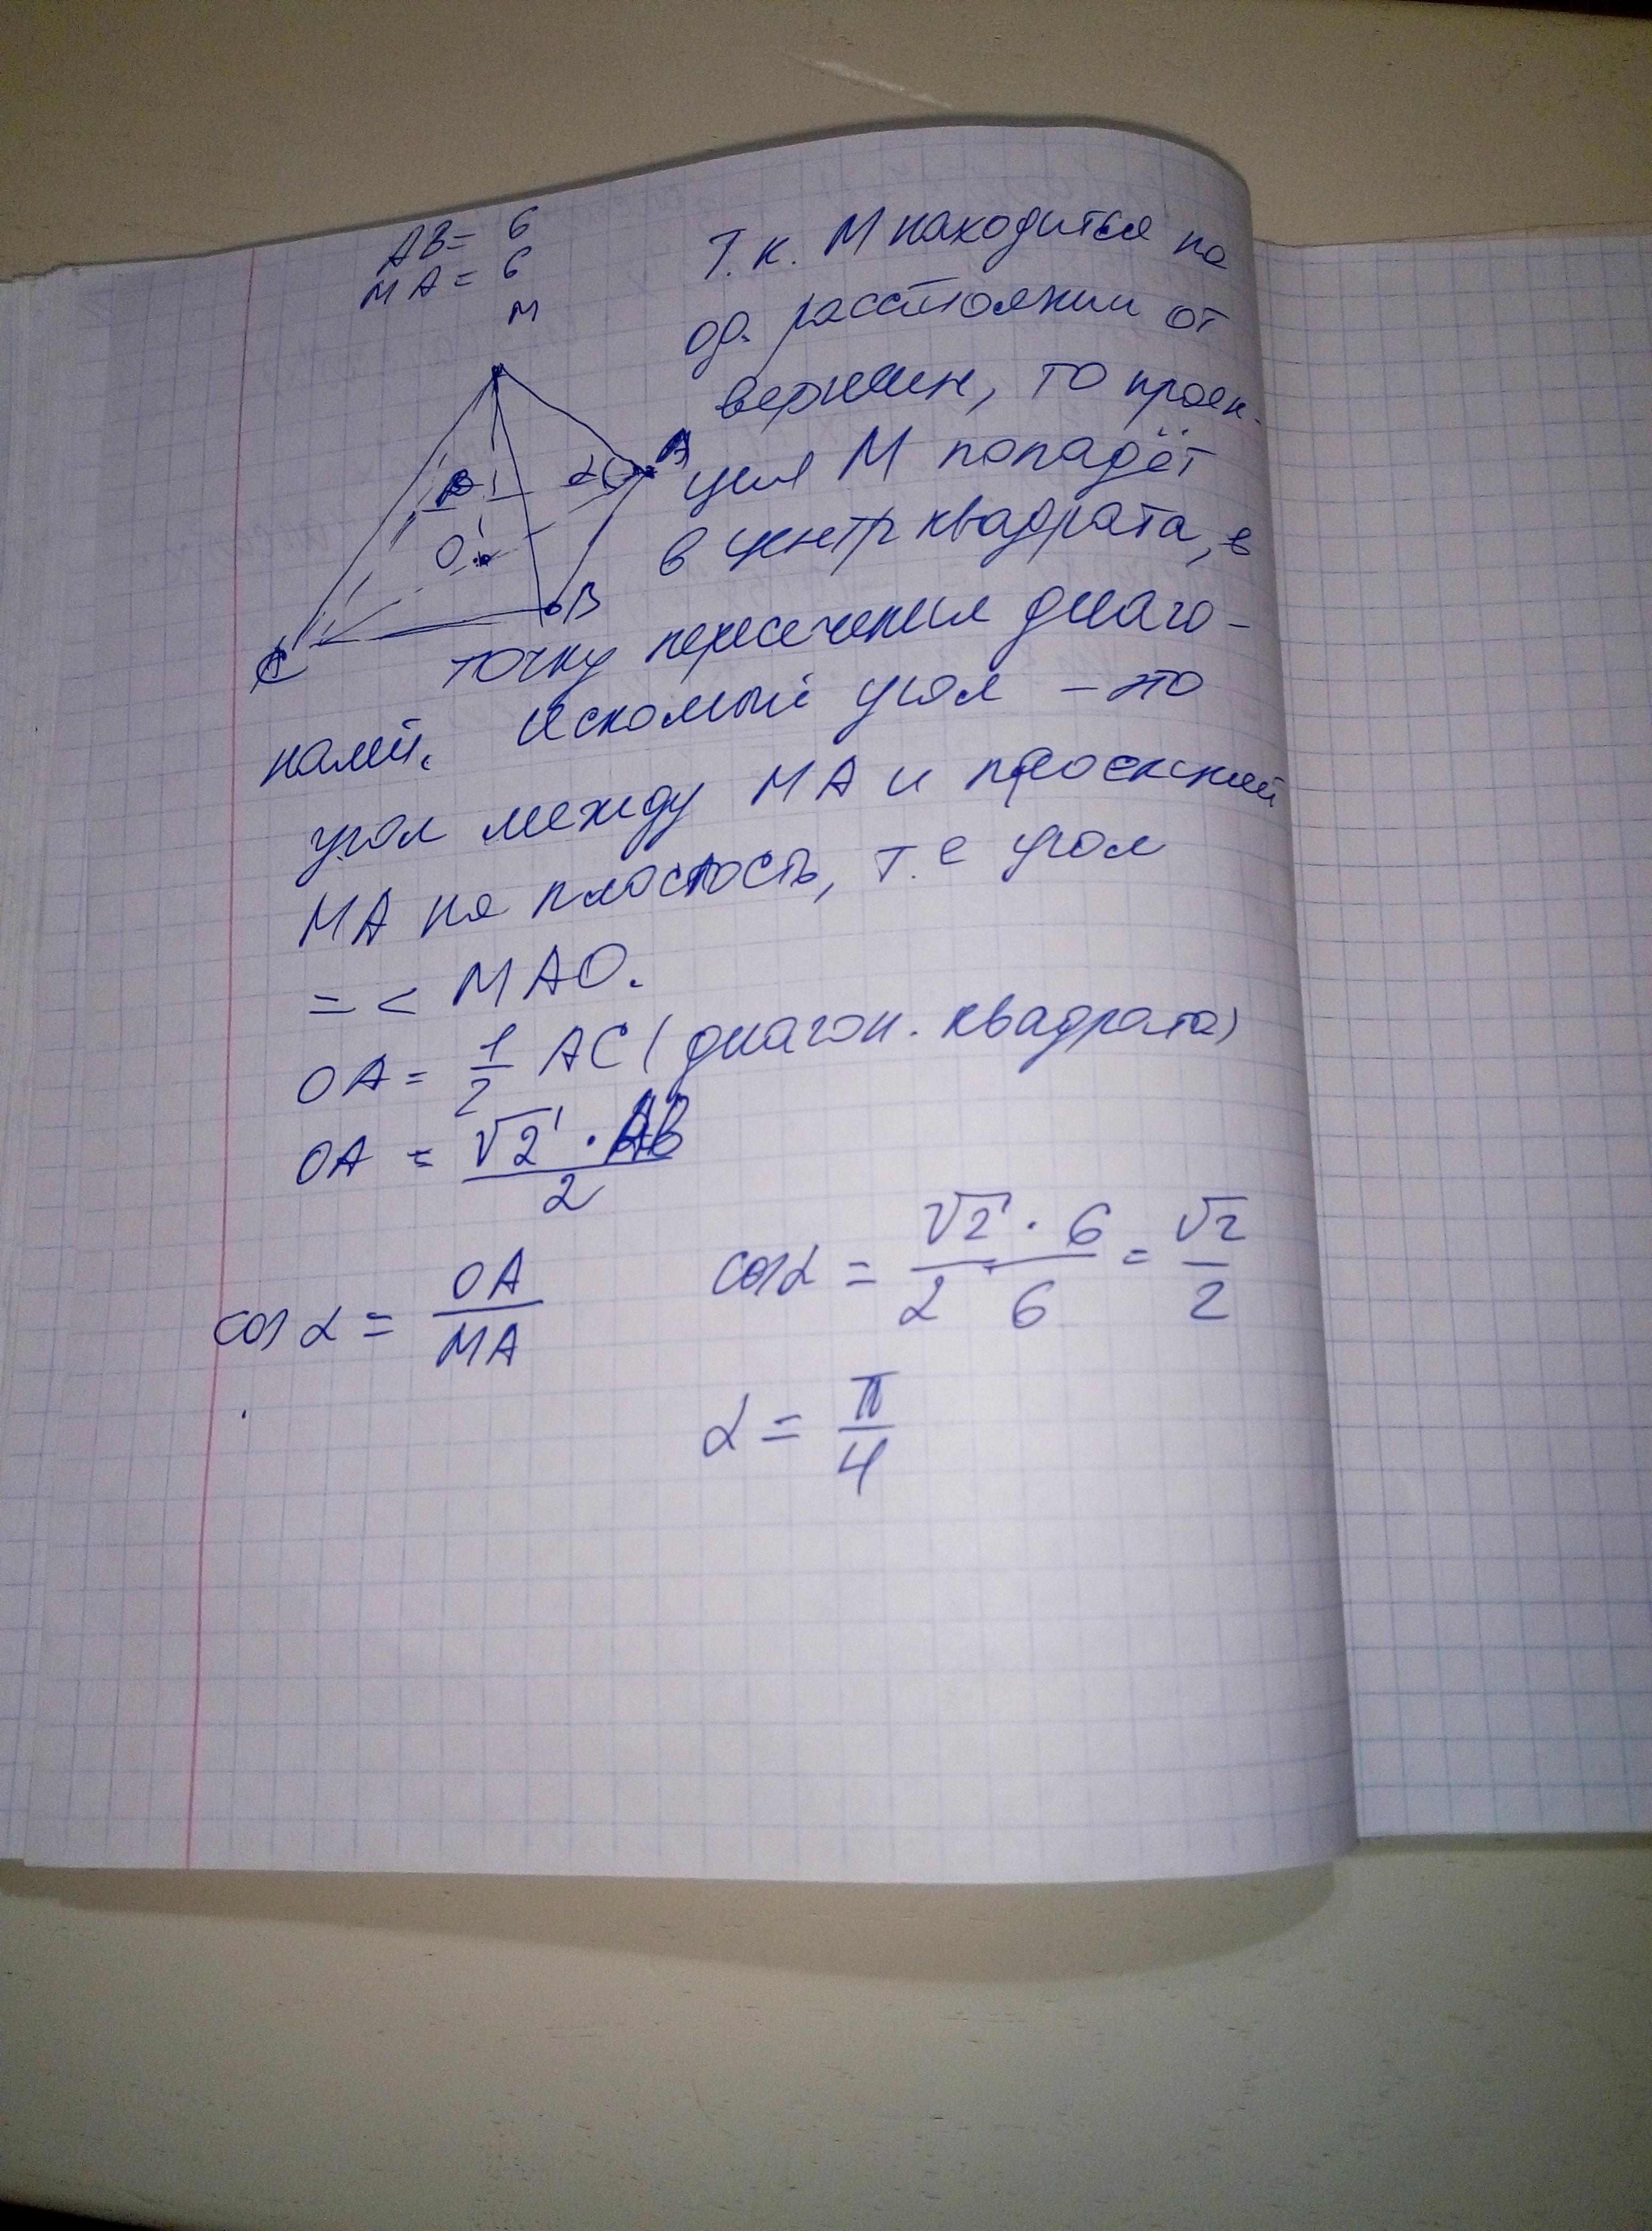 AB = 6
MA = 6
M
Т.к. М находится на
од. расстоянии от
вершин, то проек-
ция М попадёт
в центр квадрата, в
точку пересечения диаго-
налей. Искомый угол – это
угол между МА и проекцией
МА на плоскость, т.е угол
= < MAO.
α
A
O
B
C
OA = 1/2 AC (диагон. квадрата)
OA = √2 · AB / 2
cos α = OA / MA
cos α = √2 · 6 / 2 · 6 = √2 / 2
α = π / 4